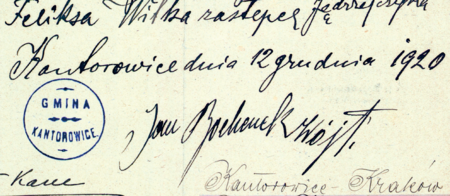 Feliksa Wilka zastępcę
Kantorowice dnia 12 grudnia 1920
GMINA
KANTOROWICE.
Jan Bochenek Wójt.
Kantorowice - Kraków